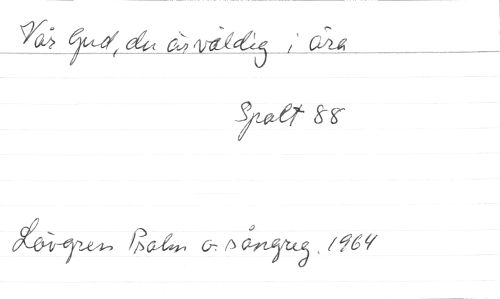 Vår Gud, du är väldig i ära
Spalt 88
Lövgren Psalm o. sångreg. 1964